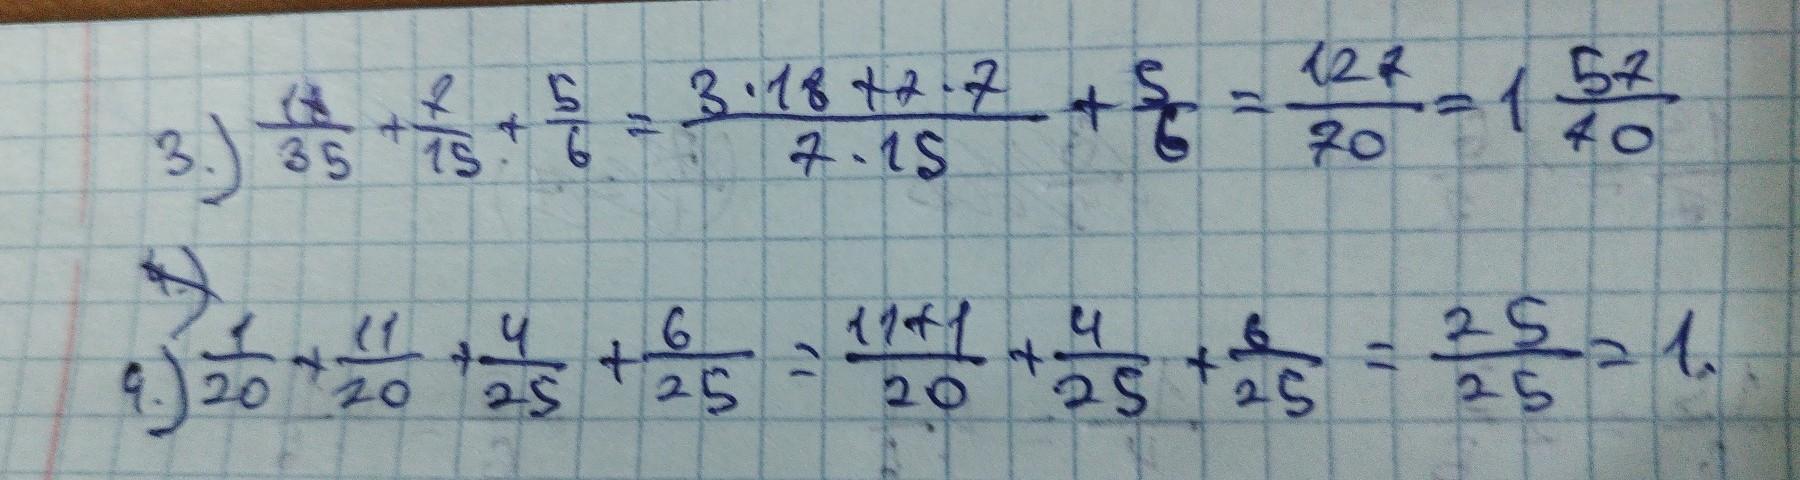 3.) 18/35 + 7/15 + 5/6 = (3·18+7·7)/(7·15) + 5/6 = 127/70 = 1 57/70
9.) 1/20 + 11/20 + 4/25 + 6/25 = (11+1)/20 + 4/25 + 6/25 = 25/25 = 1.